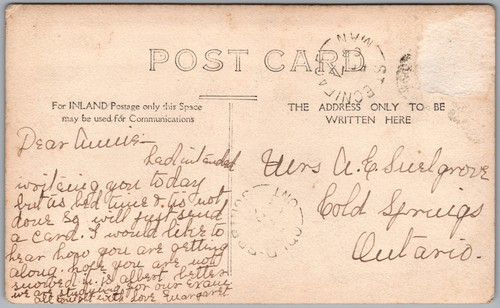 POST CARD
For INLAND Postage only this Space
may be used for Communications
THE ADDRESS ONLY TO BE
WRITTEN HERE
Dear Annie
had intended
writeing you today
but as bed time & is not
done so will just send
a card. I would like to
hear how you are getting
along. hope you are not
snowed in. is albert better
we are studying for our Exams
with love Margaret
Mrs A. E. Snelgrove
Cold Springs
Ontario.
MAN
ONT